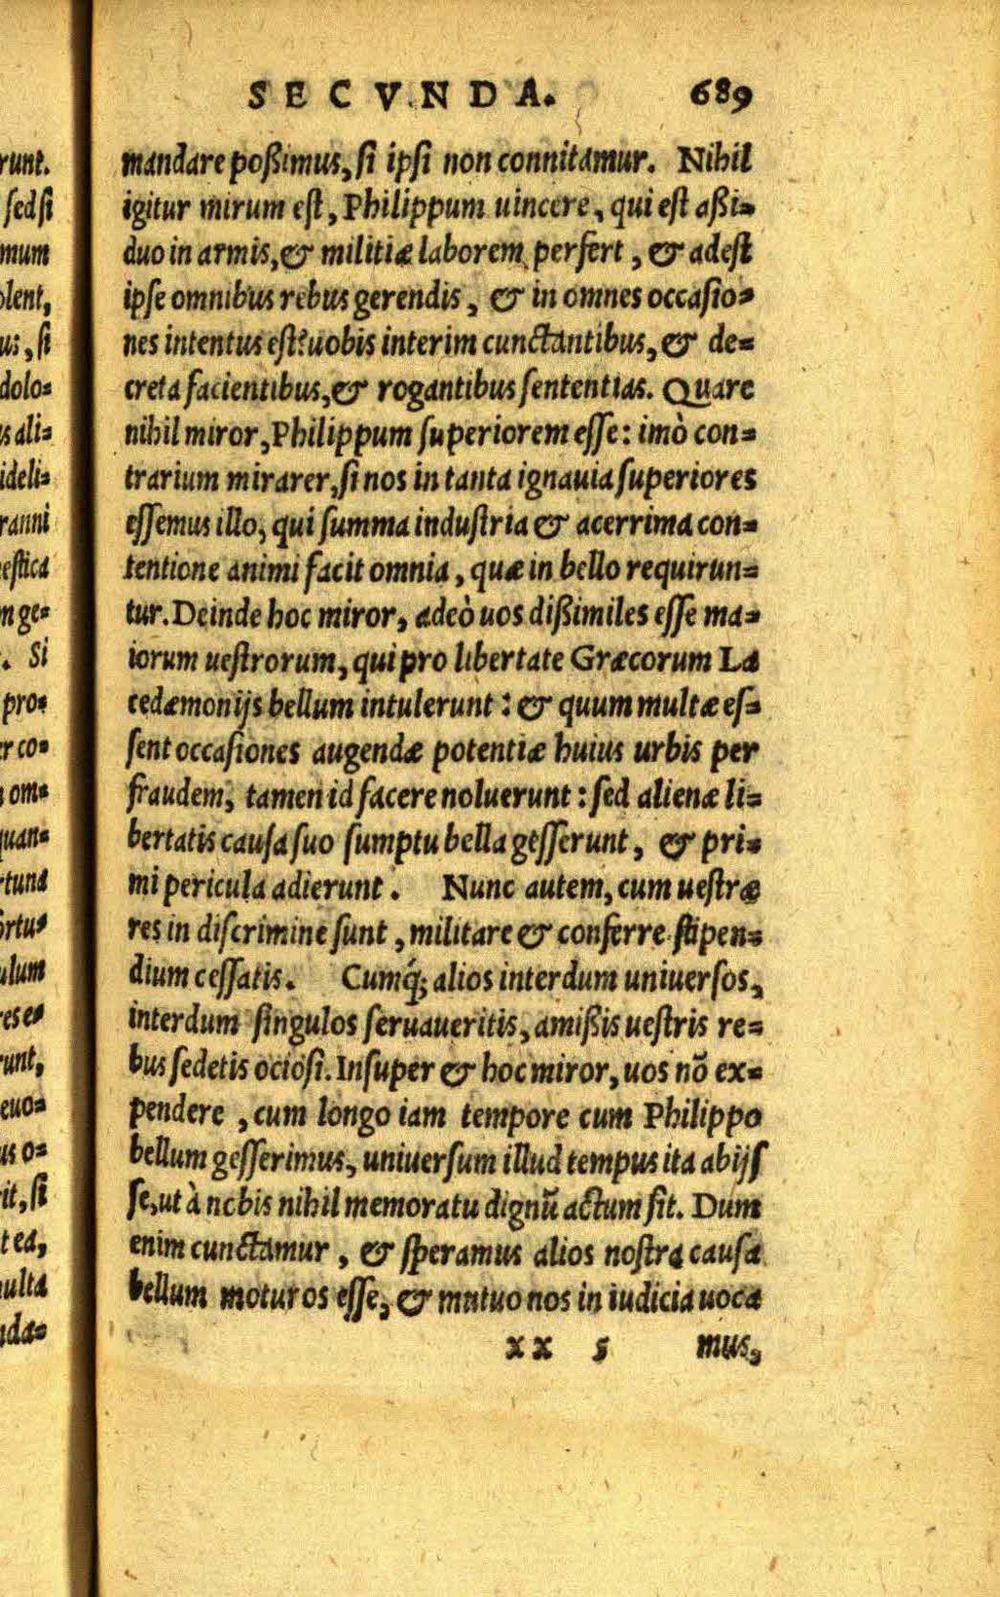 SECVNDA. 689
mandare poßimus, si ipsi non connitamur. Nihil
igitur mirum est, Philippum uincere, qui est aßi=
duo in armis, & militiæ laborem perfert, & adest
ipse omnibus rebus gerendis, & in omnes occasio=
nes intentus est: uobis interim cunctantibus, & de=
creta facientibus, & rogantibus sententias. Quare
nihil miror, Philippum superiorem esse: imò con=
trarium mirarer, si nos in tanta ignauia superiores
essemus illo, qui summa industria & acerrima con=
tentione animi facit omnia, quæ in bello requirun=
tur. Deinde hoc miror, adeò uos dißimiles esse ma=
iorum uestrorum, qui pro libertate Græcorum La
cedæmonijs bellum intulerunt: & quum multæ es=
sent occasiones augendæ potentiæ huius urbis per
fraudem, tamen id facere noluerunt: sed alienæ li=
bertatis causa suo sumptu bella gesserunt, & pri=
mi pericula adierunt. Nunc autem, cum uestræ
res in discrimine sunt, militare & conferre stipen=
dium cessatis. Cumq́; alios interdum uniuersos,
interdum singulos seruaueritis, amißis uestris re=
bus sedetis ociosi. Insuper & hoc miror, uos nõ ex=
pendere, cum longo iam tempore cum Philippo
bellum gesserimus, uniuersum illud tempus ita abijs
se, ut à nobis nihil memoratu dignũ actum sit. Dum
enim cunctamur, & speramus alios nostra causa
bellum moturos esse, & mutuo nos in iudicia uoca
xx 5 mus,
runt.
sed si
mum
olent,
us, si
dolo=
s ali=
ideli=
ranni
estica
n ge=
. Si
pro=
r co=
om=
quan=
rtuna
ortus
ulum
ese=
unt,
euo=
us o=
it, si
tea,
ulta
nda=